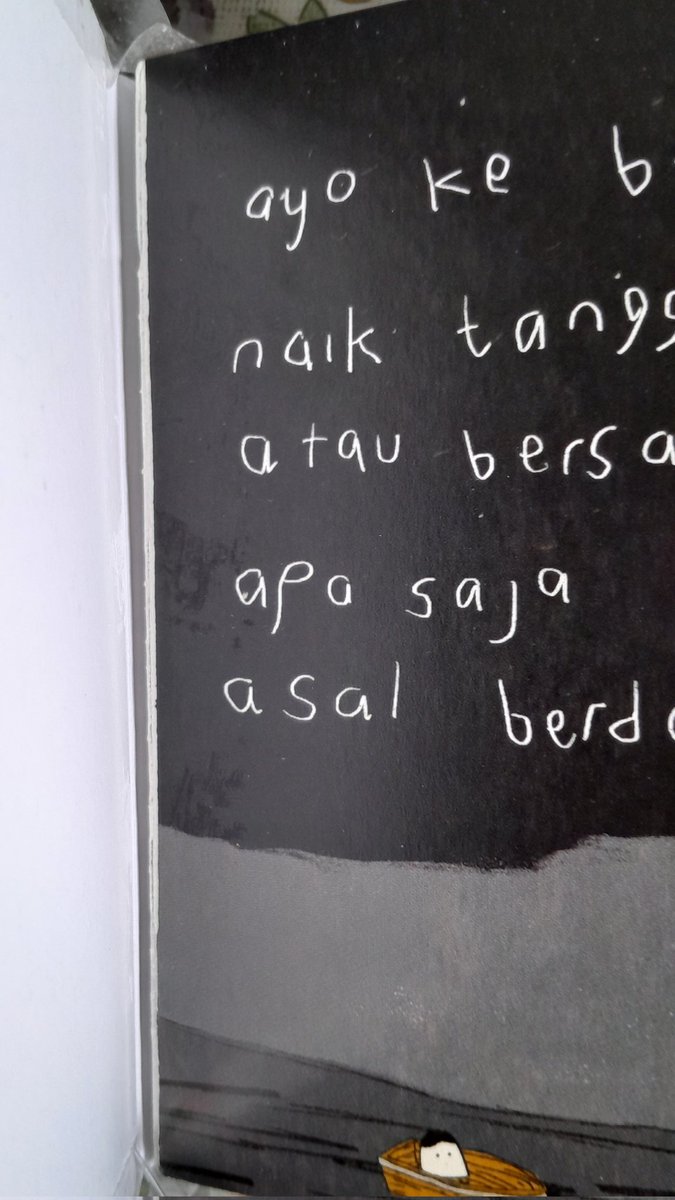 ayo ke b
naik tangg
atau bersa
apa saja
asal berd